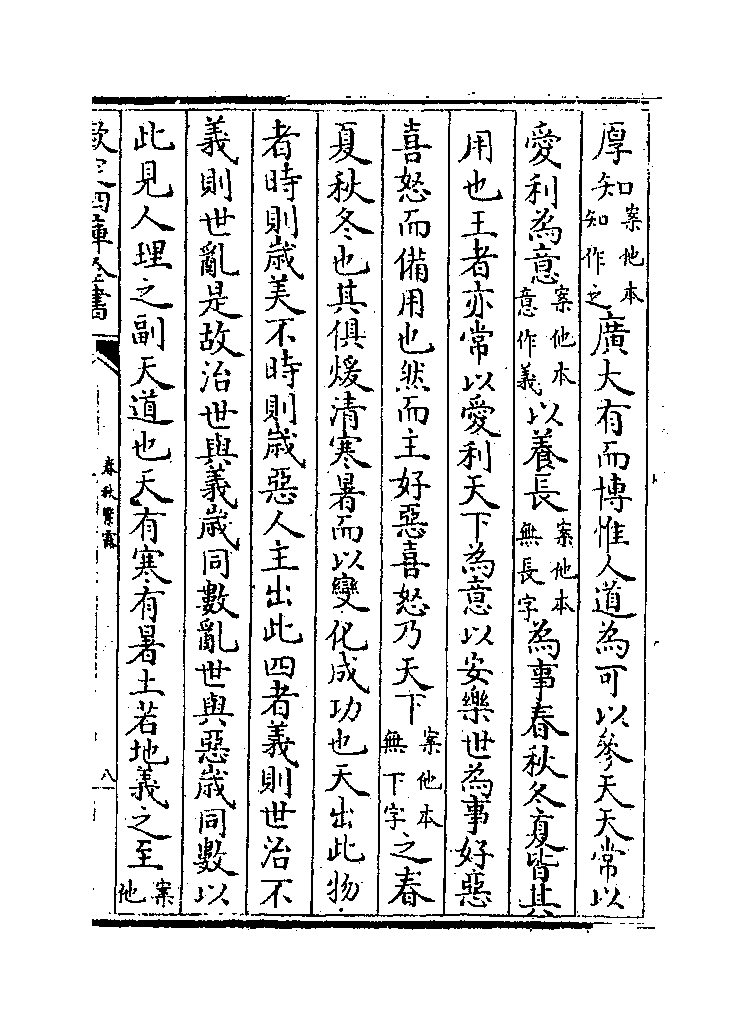 厚知案他本知作之廣大有而博惟人道為可以參天天常以
愛利為意案他本意作義以養長案他本無長字為事春秋冬夏皆其
用也王者亦常以愛利天下為意以安樂世為事好惡
喜怒而備用也然而主好惡喜怒乃天下案他本無下字之春
夏秋冬也其俱煖清寒暑而以變化成功也天出此物
者時則歳美不時則歳惡人主出此四者義則世治不
義則世亂是故治世與義歳同數亂世與惡歳同數以
此見人理之副天道也天有寒有暑土若地義之至案他
欽定四庫全書
春秋繁露
八